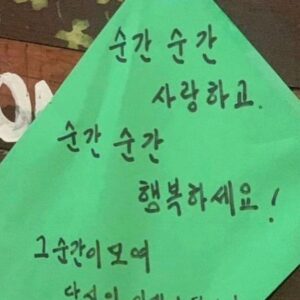 순간 순간
사랑하고.
순간 순간
행복하세요!
그 순간이 모여
당신의